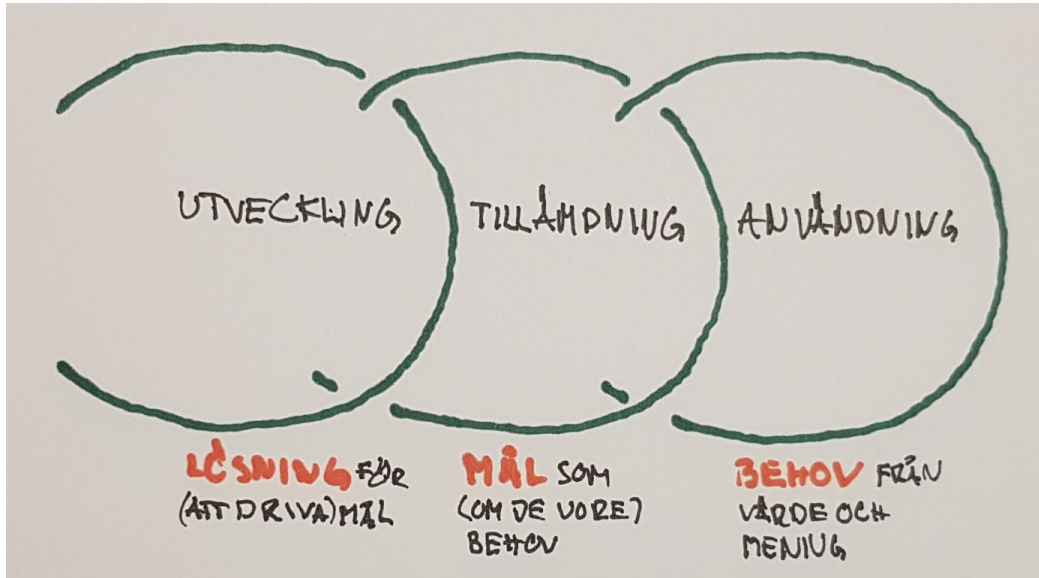 UTVECKLING
TILLÄMPNING
ANVÄNDNING
LÖSNING FÖR
(ATT DRIVA) MÅL
MÅL SOM
(OM DE VORE)
BEHOV
BEHOV FRÅN
VÄRDE OCH
MENING